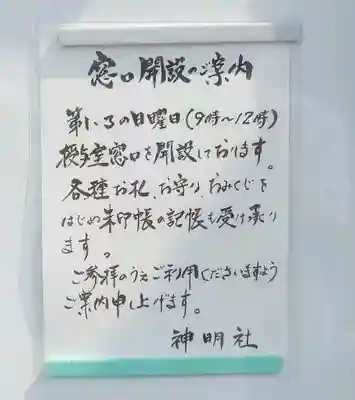 窓口開設のご案内
第1、3の日曜日(9時～12時)
授与室窓口を開設しております。
各種お札、お守り、おみくじを
はじめ朱印帳の記帳も受け承り
ます。
ご参拝のうえご利用くださいますよう
ご案内申し上げます。
神明社